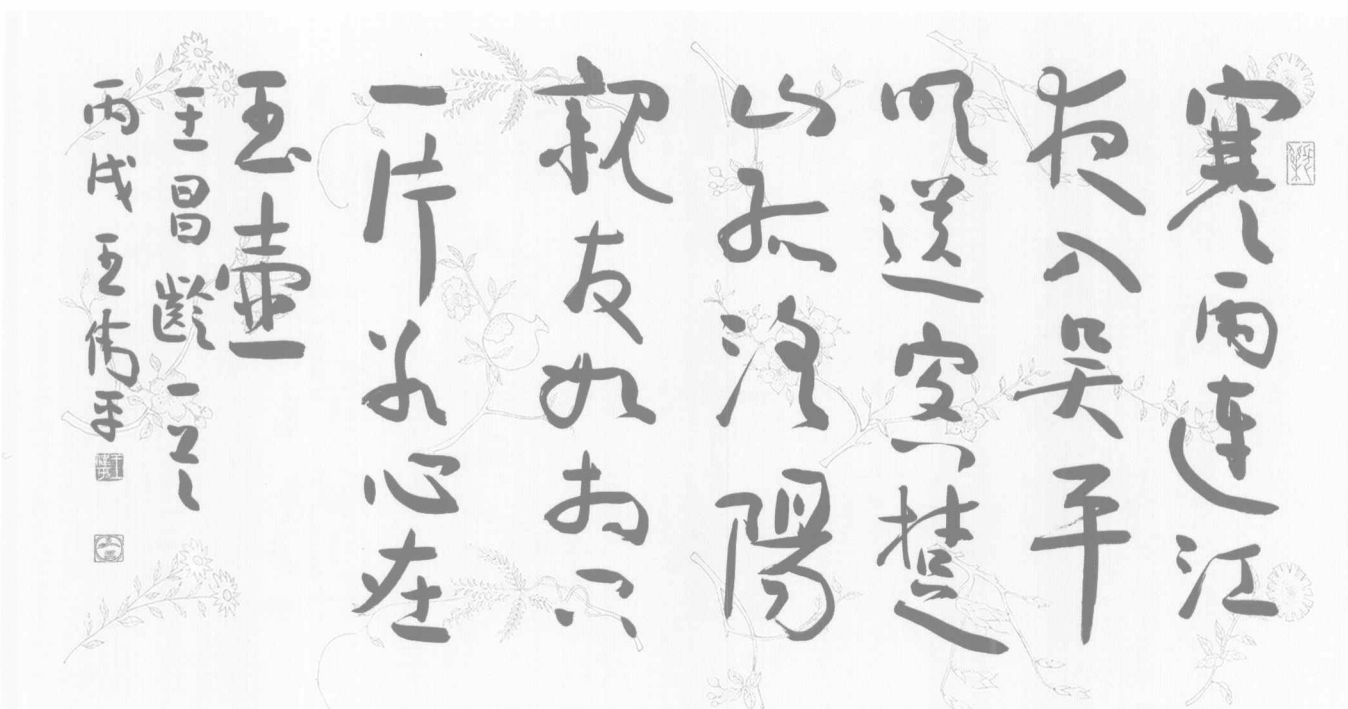 寒雨連江
夜入吴平
明送客楚
山孤洛陽
親友如相问
一片冰心在
玉壺
王昌齡
丙戌王偉平